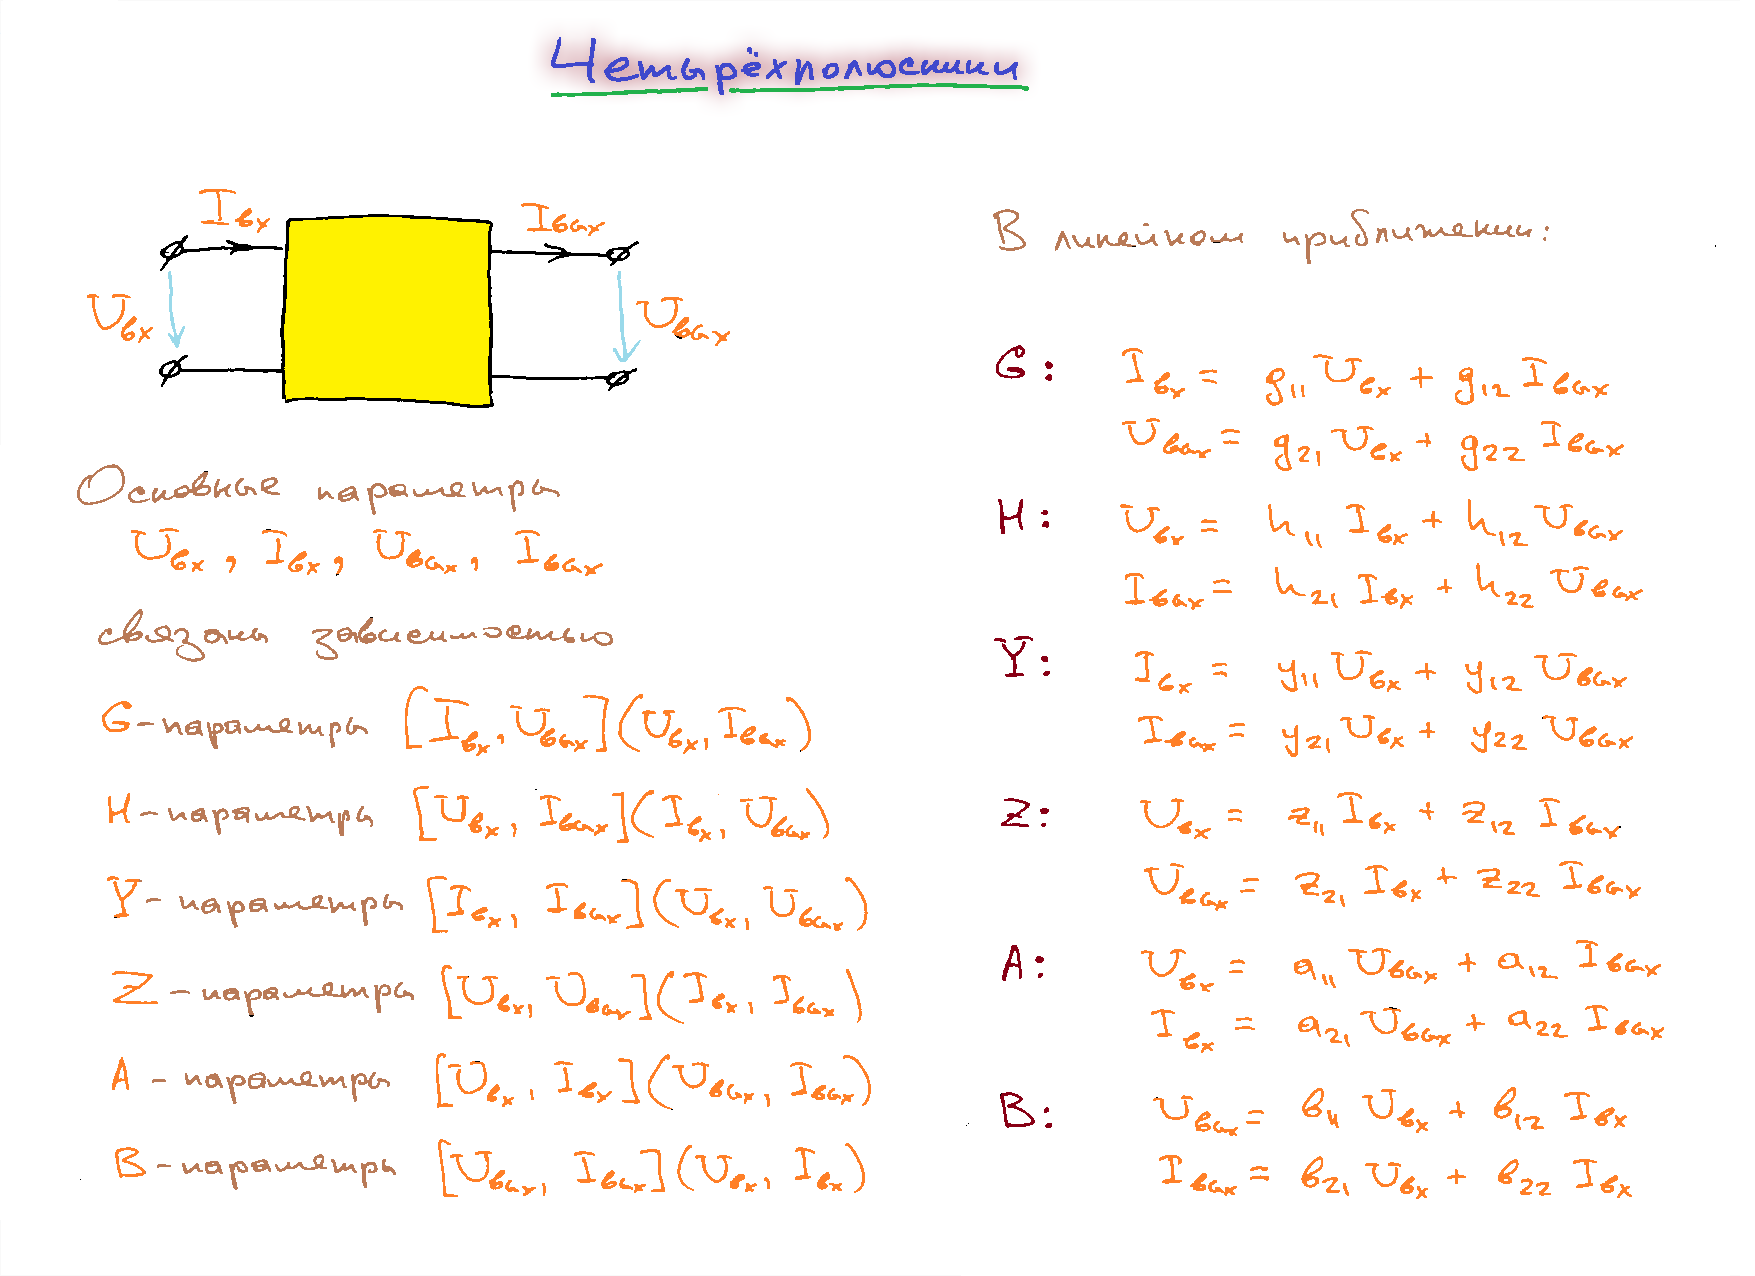 Четырёхполюсники
Iвх
Iвых
Uвх
Uвых
Основные параметры
Uвх, Iвх, Uвых, Iвых
связаны зависимостью
G-параметры [Iвх, Uвых](Uвх, Iвых)
H-параметры [Uвх, Iвых](Iвх, Uвых)
Y-параметры [Iвх, Iвых](Uвх, Uвых)
Z-параметры [Uвх, Uвых](Iвх, Iвых)
A-параметры [Uвх, Iвх](Uвых, Iвых)
B-параметры [Uвых, Iвых](Uвх, Iвх)
В линейном приближении:
G: Iвх = g11 Uвх + g12 Iвых
Uвых = g21 Uвх + g22 Iвых
H: Uвх = h11 Iвх + h12 Uвых
Iвых = h21 Iвх + h22 Uвых
Y: Iвх = y11 Uвх + y12 Uвых
Iвых = y21 Uвх + y22 Uвых
Z: Uвх = z11 Iвх + z12 Iвых
Uвых = z21 Iвх + z22 Iвых
A: Uвх = a11 Uвых + a12 Iвых
Iвх = a21 Uвых + a22 Iвых
B: Uвых = в11 Uвх + в12 Iвх
Iвых = в21 Uвх + в22 Iвх